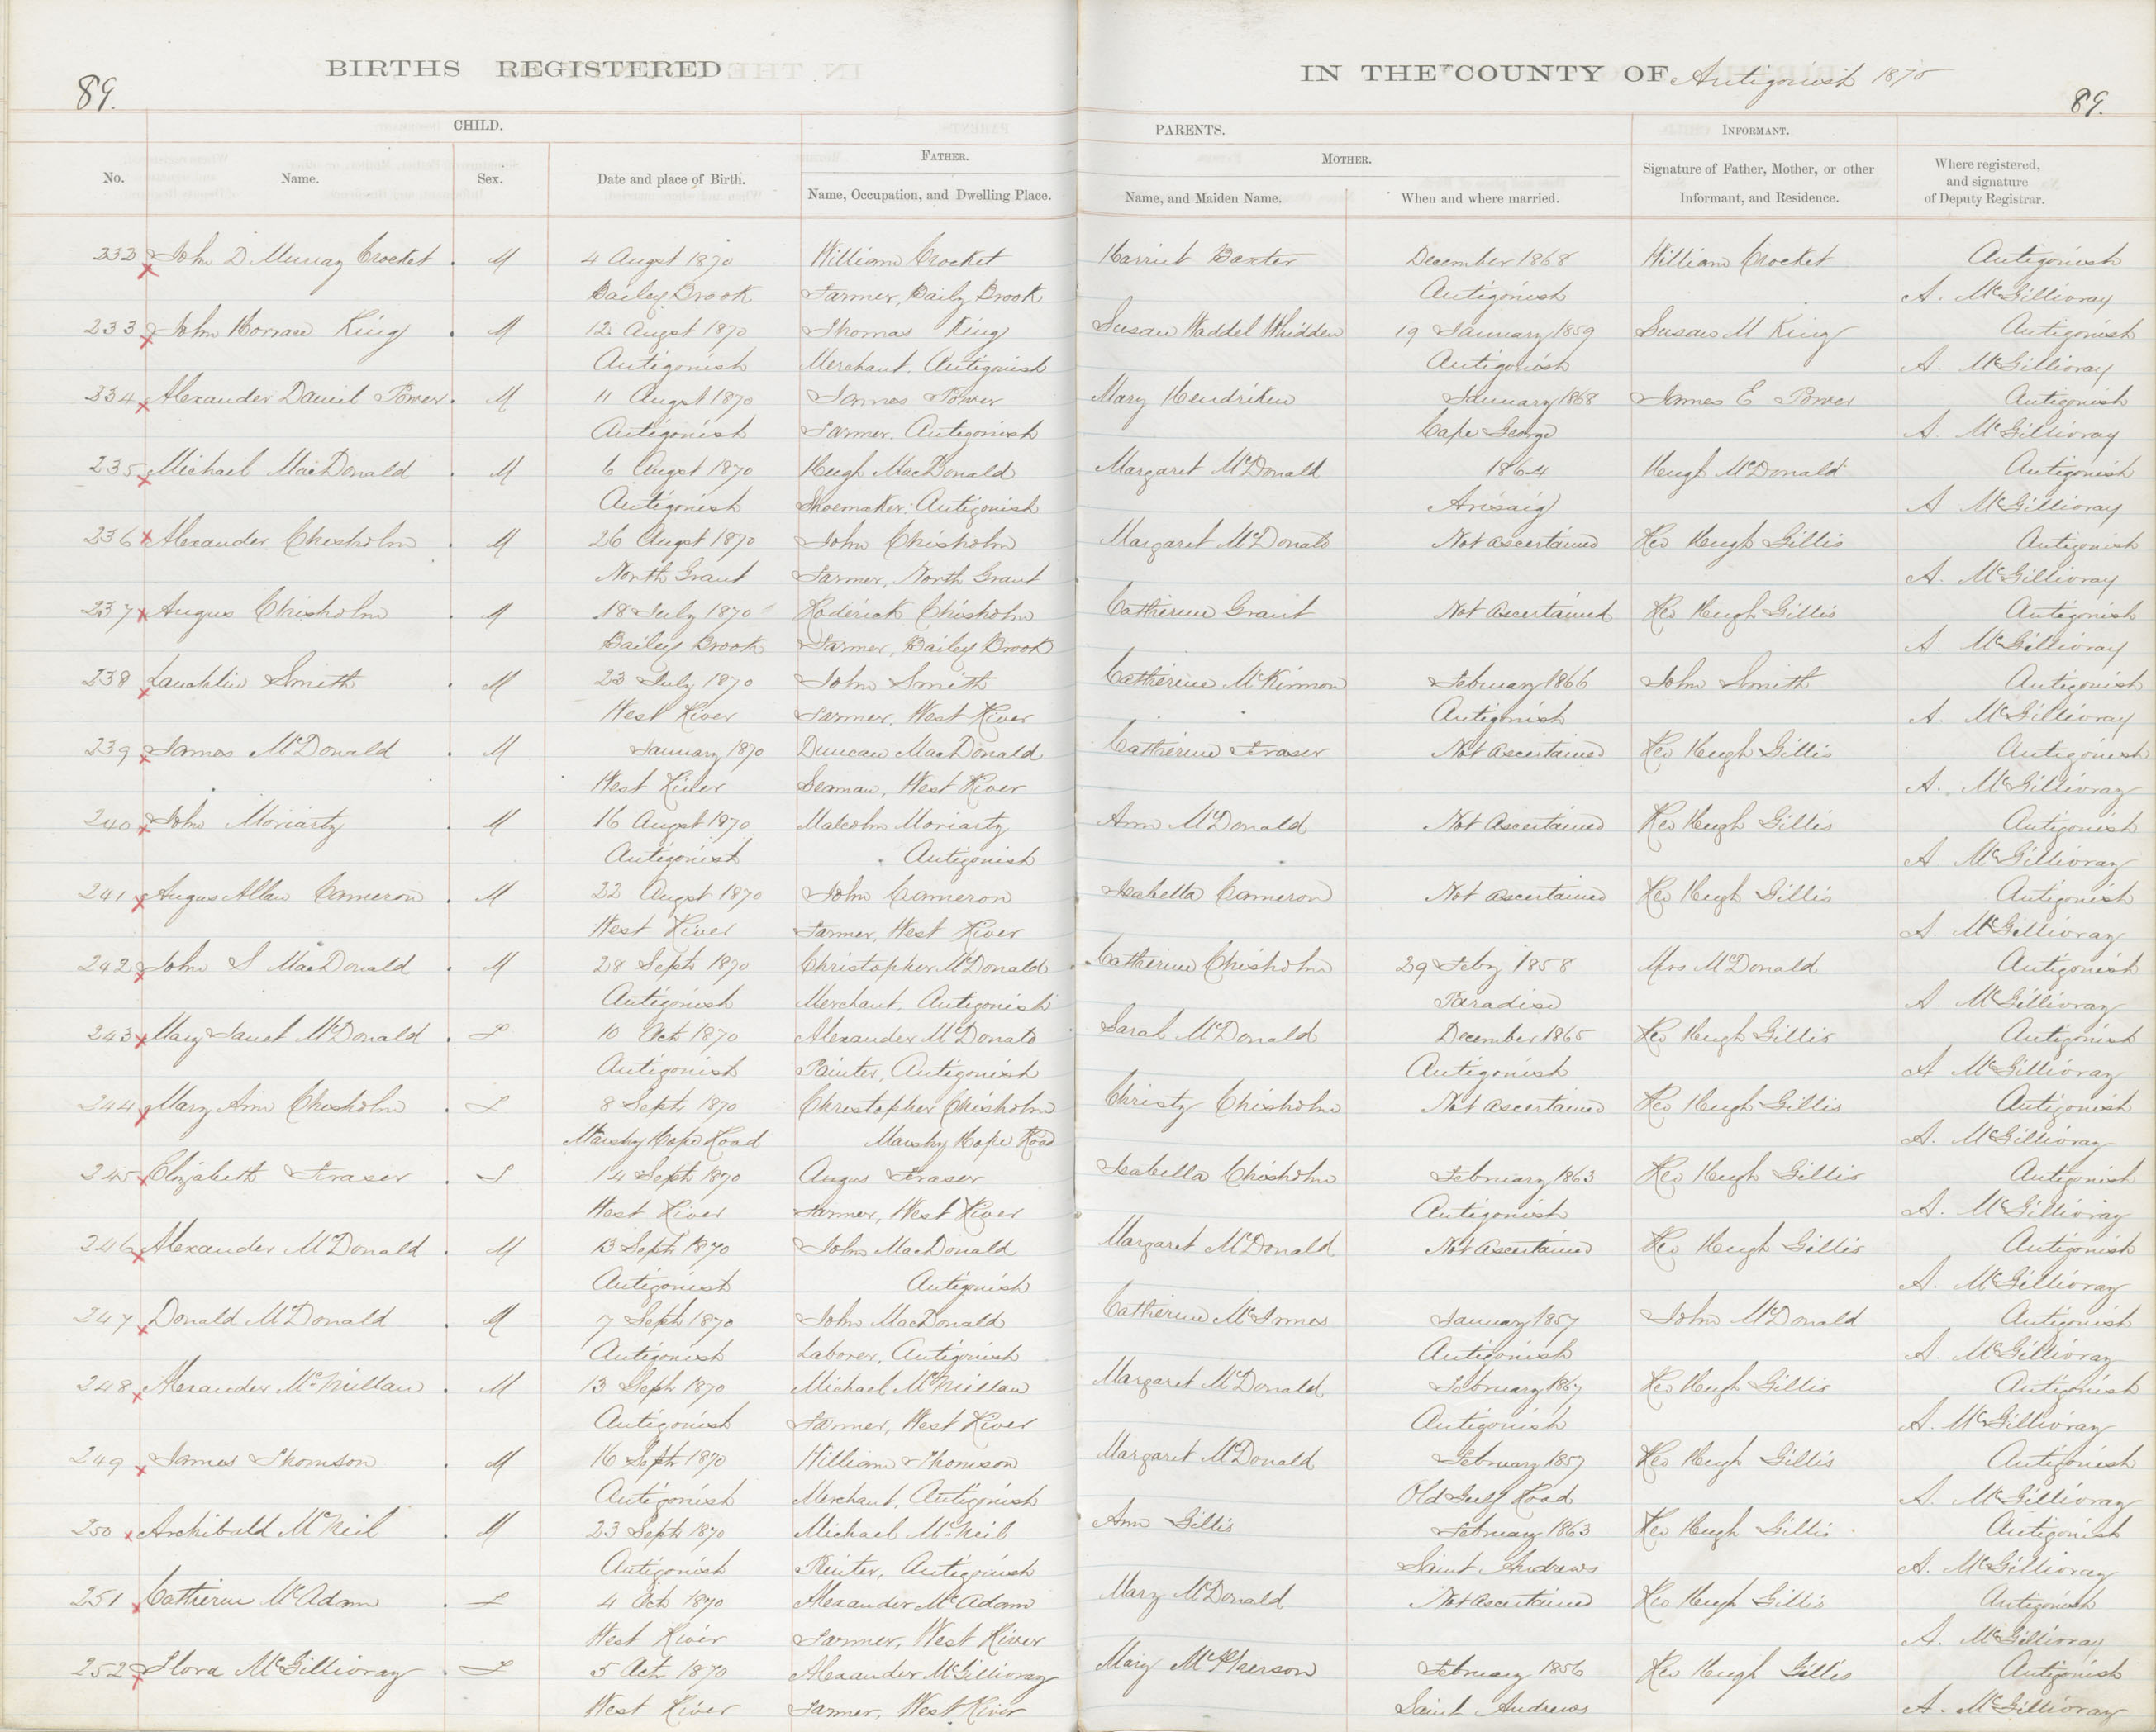 BIRTHS REGISTERED IN THE COUNTY OF Antigonish 1870
89. 89.
CHILD. PARENTS. INFORMANT.
FATHER. MOTHER.
No. Name. Sex. Date and place of Birth. Name, Occupation, and Dwelling Place. Name, and Maiden Name. When and where married. Signature of Father, Mother, or other Informant, and Residence. Where registered, and signature of Deputy Registrar.
232 John D Murray Crocket M 4 Augst 1870 William Crocket Harriet Baxter December 1868 William Crocket Antigonish
Bailey Brook Farmer, Baily Brook Antigonish A. McGillivray
233 John Horrace King M 12 Augst 1870 Thomas King Susan Waddel Whidden 19 January 1859 Susan M King Antigonish
Antigonish Merchant. Antigonish Antigonish A. McGillivray
234 Alexander Daniel Power M 11 Augst 1870 James Power Mary Hendriken January 1868 James E Power Antigonish
Antigonish Farmer. Antigonish Cape George A. McGillivray
235 Michael MacDonald M 6 Augst 1870 Hugh MacDonald Margaret McDonald 1864 Hugh McDonald Antigonish
Antigonish Shoemaker. Antigonish Arisaig A McGillivray
236 Alexander Chisholm M 26 Augst 1870 John Chisholm Margaret McDonald Not Ascertained Rev Hugh Gillis Antigonish
North Grant Farmer, North Grant A. McGillivray
237 Angus Chisholm M 18 July 1870 Roderick Chisholm Catherine Grant Not Ascertained Rev Hugh Gillis Antigonish
Bailey Brook Farmer, Bailey Brook A. McGillivray
238 Lauchlin Smith M 23 July 1870 John Smith Catherine McKinnon February 1866 John Smith Antigonish
West River Farmer, West River Antigonish A. McGillivray
239 James McDonald M January 1870 Duncan MacDonald Catherine Fraser Not Ascertained Rev Hugh Gillis Antigonish
West River Seaman, West River A. McGillivray
240 John Moriarty M 16 Augst 1870 Malcolm Moriarty Ann McDonald Not Ascertained Rev Hugh Gillis Antigonish
Antigonish Antigonish A. McGillivray
241 Angus Allan Cameron M 22 Augst 1870 John Cameron Isabella Cameron Not Ascertained Rev Hugh Gillis Antigonish
West River Farmer, West River A. McGillivray
242 John S MacDonald M 28 Sept 1870 Christopher McDonald Catherine Chisholm 29 Feby 1858 Mrs McDonald Antigonish
Antigonish Merchant, Antigonish Paradise A McGillivray
243 Mary Janet McDonald F 10 Oct 1870 Alexander McDonald Sarah McDonald December 1865 Rev Hugh Gillis Antigonish
Antigonish Painter, Antigonish Antigonish A McGillivray
244 Mary Ann Chisholm F 8 Sept 1870 Christopher Chisholm Christy Chisholm Not Ascertained Rev Hugh Gillis Antigonish
Marshy Hope Road Marshy Hope Road A. McGillivray
245 Elizabeth Fraser F 14 Sept 1870 Angus Fraser Isabella Chisholm February 1863 Rev Hugh Gillis Antigonish
West River Farmer, West River Antigonish A. McGillivray
246 Alexander McDonald M 13 Sept 1870 John MacDonald Margaret McDonald Not Ascertained Rev Hugh Gillis Antigonish
Antigonish Antigonish A. McGillivray
247 Donald McDonald M 7 Sept 1870 John MacDonald Catherine McInnes January 1857 John McDonald Antigonish
Antigonish Laborer, Antigonish Antigonish A. McGillivray
248 Alexander McMillan M 13 Sept 1870 Michael McMillan Margaret McDonald February 1867 Rev Hugh Gillis Antigonish
Antigonish Farmer, West River Antigonish A. McGillivray
249 James Thomson M 16 Sept 1870 William Thomson Margaret McDonald February 1857 Rev Hugh Gillis Antigonish
Antigonish Merchant, Antigonish Old Gulf Road A. McGillivray
250 Archibald McNeil M 23 Sept 1870 Michael McNeil Ann Gillis February 1863 Rev Hugh Gillis Antigonish
Antigonish Printer, Antigonish Saint Andrews A. McGillivray
251 Catherine McAdam F 4 Oct 1870 Alexander McAdam Mary McDonald Not Ascertained Rev Hugh Gillis Antigonish
West River Farmer, West River A. McGillivray
252 Flora McGillivray F 5 Oct 1870 Alexander McGillivray Mary McPherson February 1856 Rev Hugh Gillis Antigonish
West River Farmer, West River Saint Andrews A. McGillivray